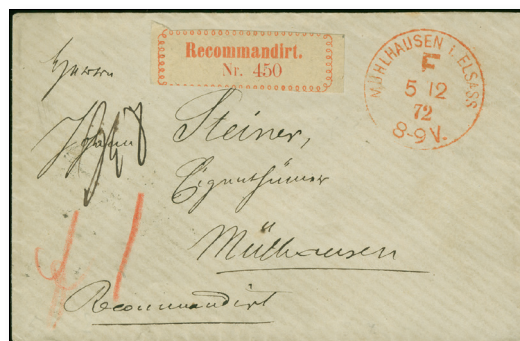 Recommandirt.
Nr. 450
MÜHLHAUSEN I. ELSASS
F
5 12
72
8-9 V.
Herrn
Steiner,
Eigenthümer
Mülhausen
Recommandirt